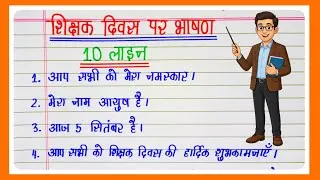 शिक्षक दिवस पर भाषण
10 लाइन
1. आप सभी को मेरा नमस्कार।
2. मेरा नाम आयुष है।
3. आज 5 सितंबर है।
4. आप सभी को शिक्षक दिवस की हार्दिक शुभकामनाएँ।